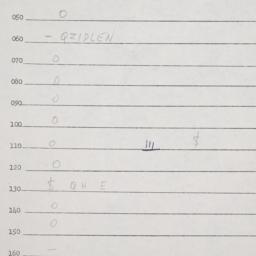 050 0
060 - QZIDLEN
070 0
080 0
090 0
100 0
110 0 III $
120 0
130 $ Q H E
140 0
150 0
160 -